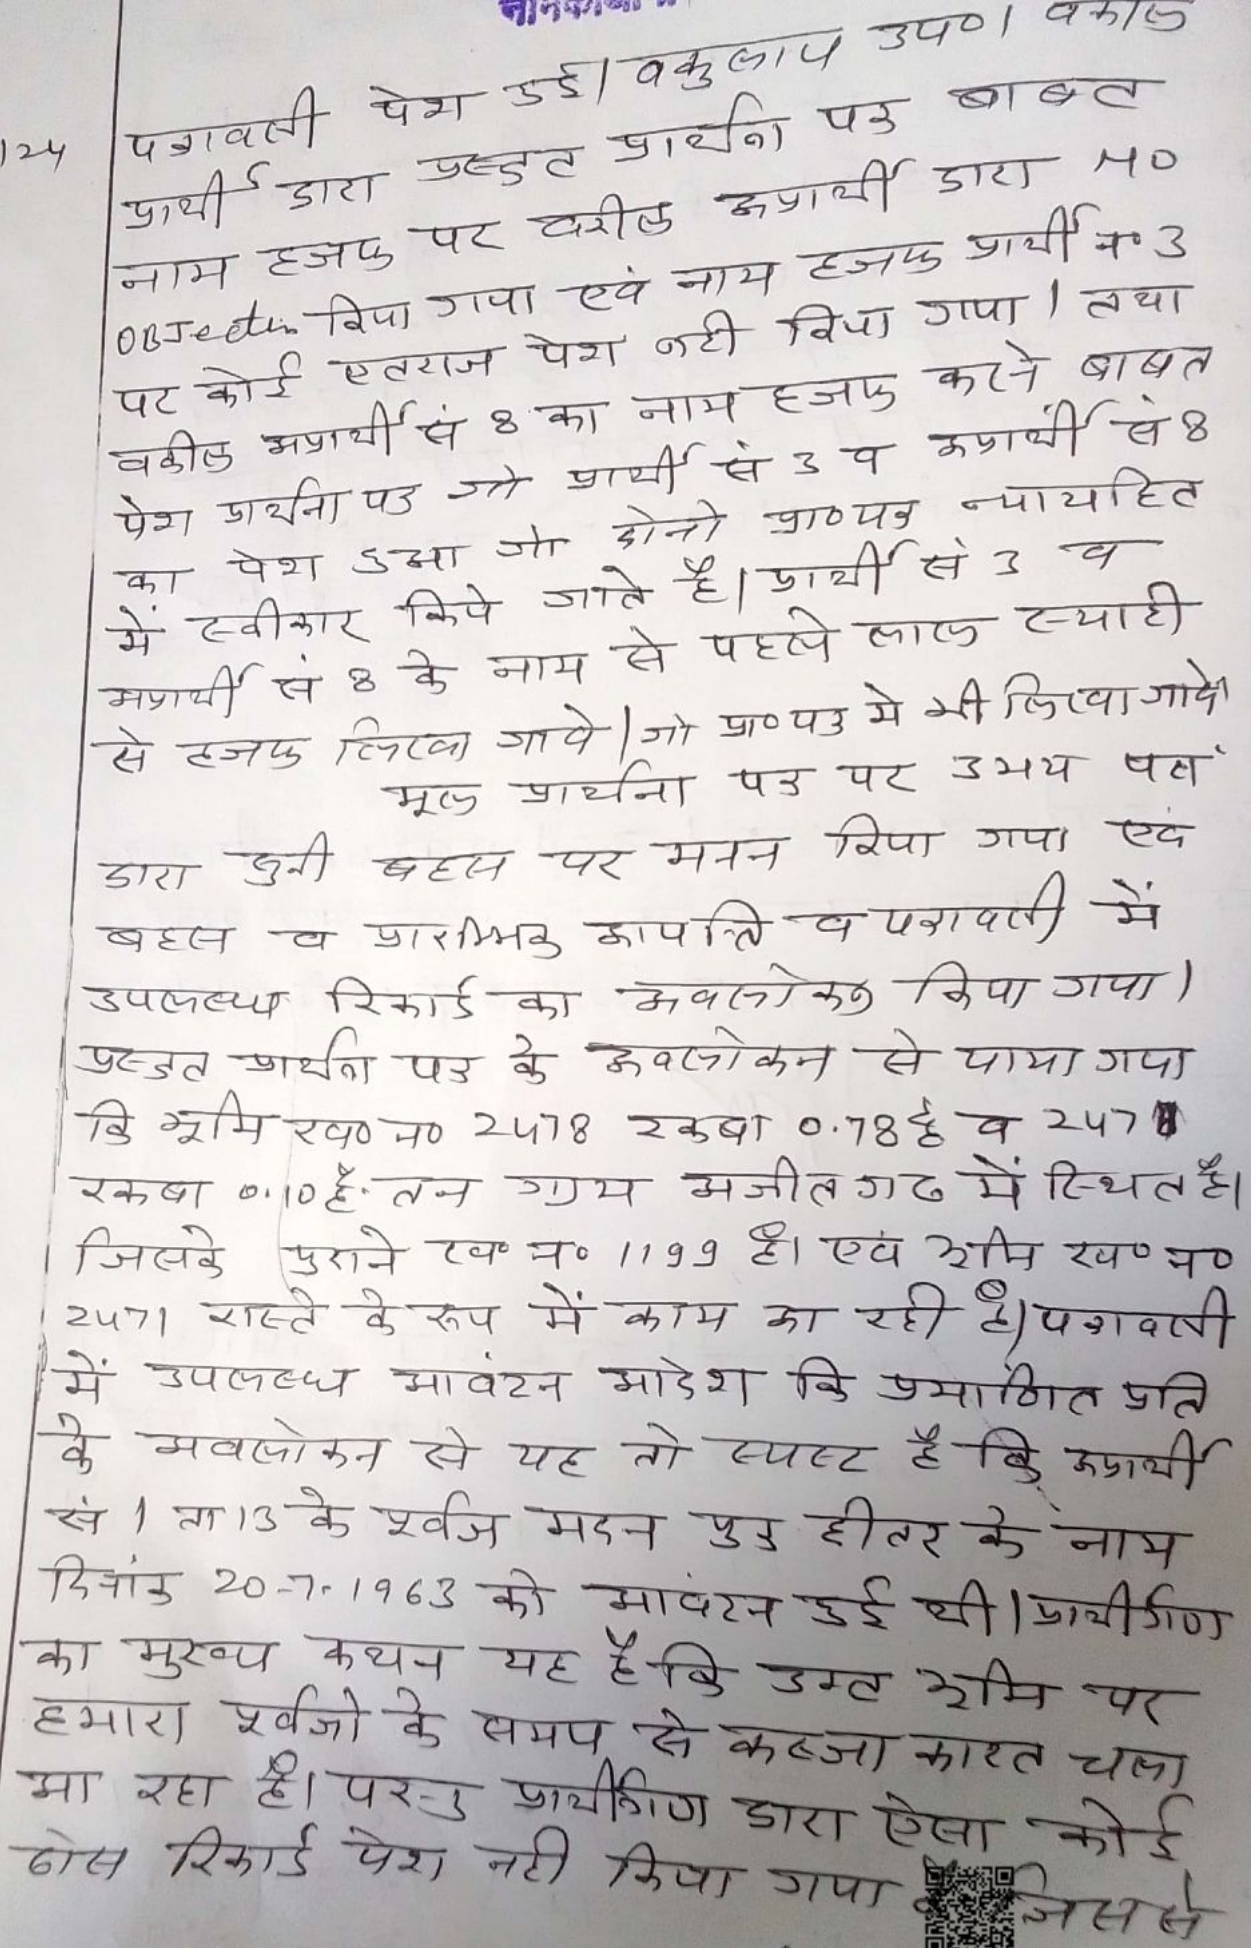 /24
पत्रावली पेश हुई। वकुलाय उप०। वकील
प्रार्थी द्वारा प्रस्तुत प्रार्थना पत्र बाबत
नाम हजफ पर वकील अप्रार्थी द्वारा NO
OBJection किया गया एवं नाम हजफ प्रार्थी न० 3
पर कोई एतराज पेश नही किया गया। तथा
वकील अप्रार्थी सं 8 का नाम हजफ करने बाबत
पेश प्रार्थना पत्र जो प्रार्थी सं 3 व अप्रार्थी सं 8
का पेश हुआ जो दोनो प्रा०पत्र न्यायहित
में स्वीकार किये जाते है। प्रार्थी सं 3 व
अप्रार्थी सं 8 के नाम से पहले लाल स्याही
से हजफ लिखा जावे। जो प्रा०पत्र मे भी लिखा जावे।
मूल प्रार्थना पत्र पर उभय पक्ष
द्वारा सुनी बहस पर मनन किया गया एवं
बहस व प्रारम्भिक आपत्ति व पत्रावली में
उपलब्ध रिकार्ड का अवलोकन किया गया।
प्रस्तुत प्रार्थना पत्र के अवलोकन से पाया गया
कि भूमि ख० न० 2478 रकबा 0.78 है व 2471
रकबा 0.10 है. तन ग्राम अजीतगढ में स्थित है।
जिसके पुराने ख० न० 1199 है। एवं भूमि ख० न०
2471 रास्ते के रूप में काम आ रही है। पत्रावली
में उपलब्ध आवंटन आदेश कि प्रमाणित प्रति
के अवलोकन से यह तो स्पस्ट है कि अप्रार्थी
सं 1 ता 13 के पूर्वज मदन पुत्र हीतर के नाम
दिनांक 20-7-1963 को आवंटन हुई थी। प्रार्थीगण
का मुख्य कथन यह है कि उक्त भूमि पर
हमारा पूर्वजो के समय से कब्जा काश्त चला
आ रहा है। परन्तु प्रार्थीगण द्वारा ऐसा कोई
ठोस रिकार्ड पेश नही किया गया जिससे